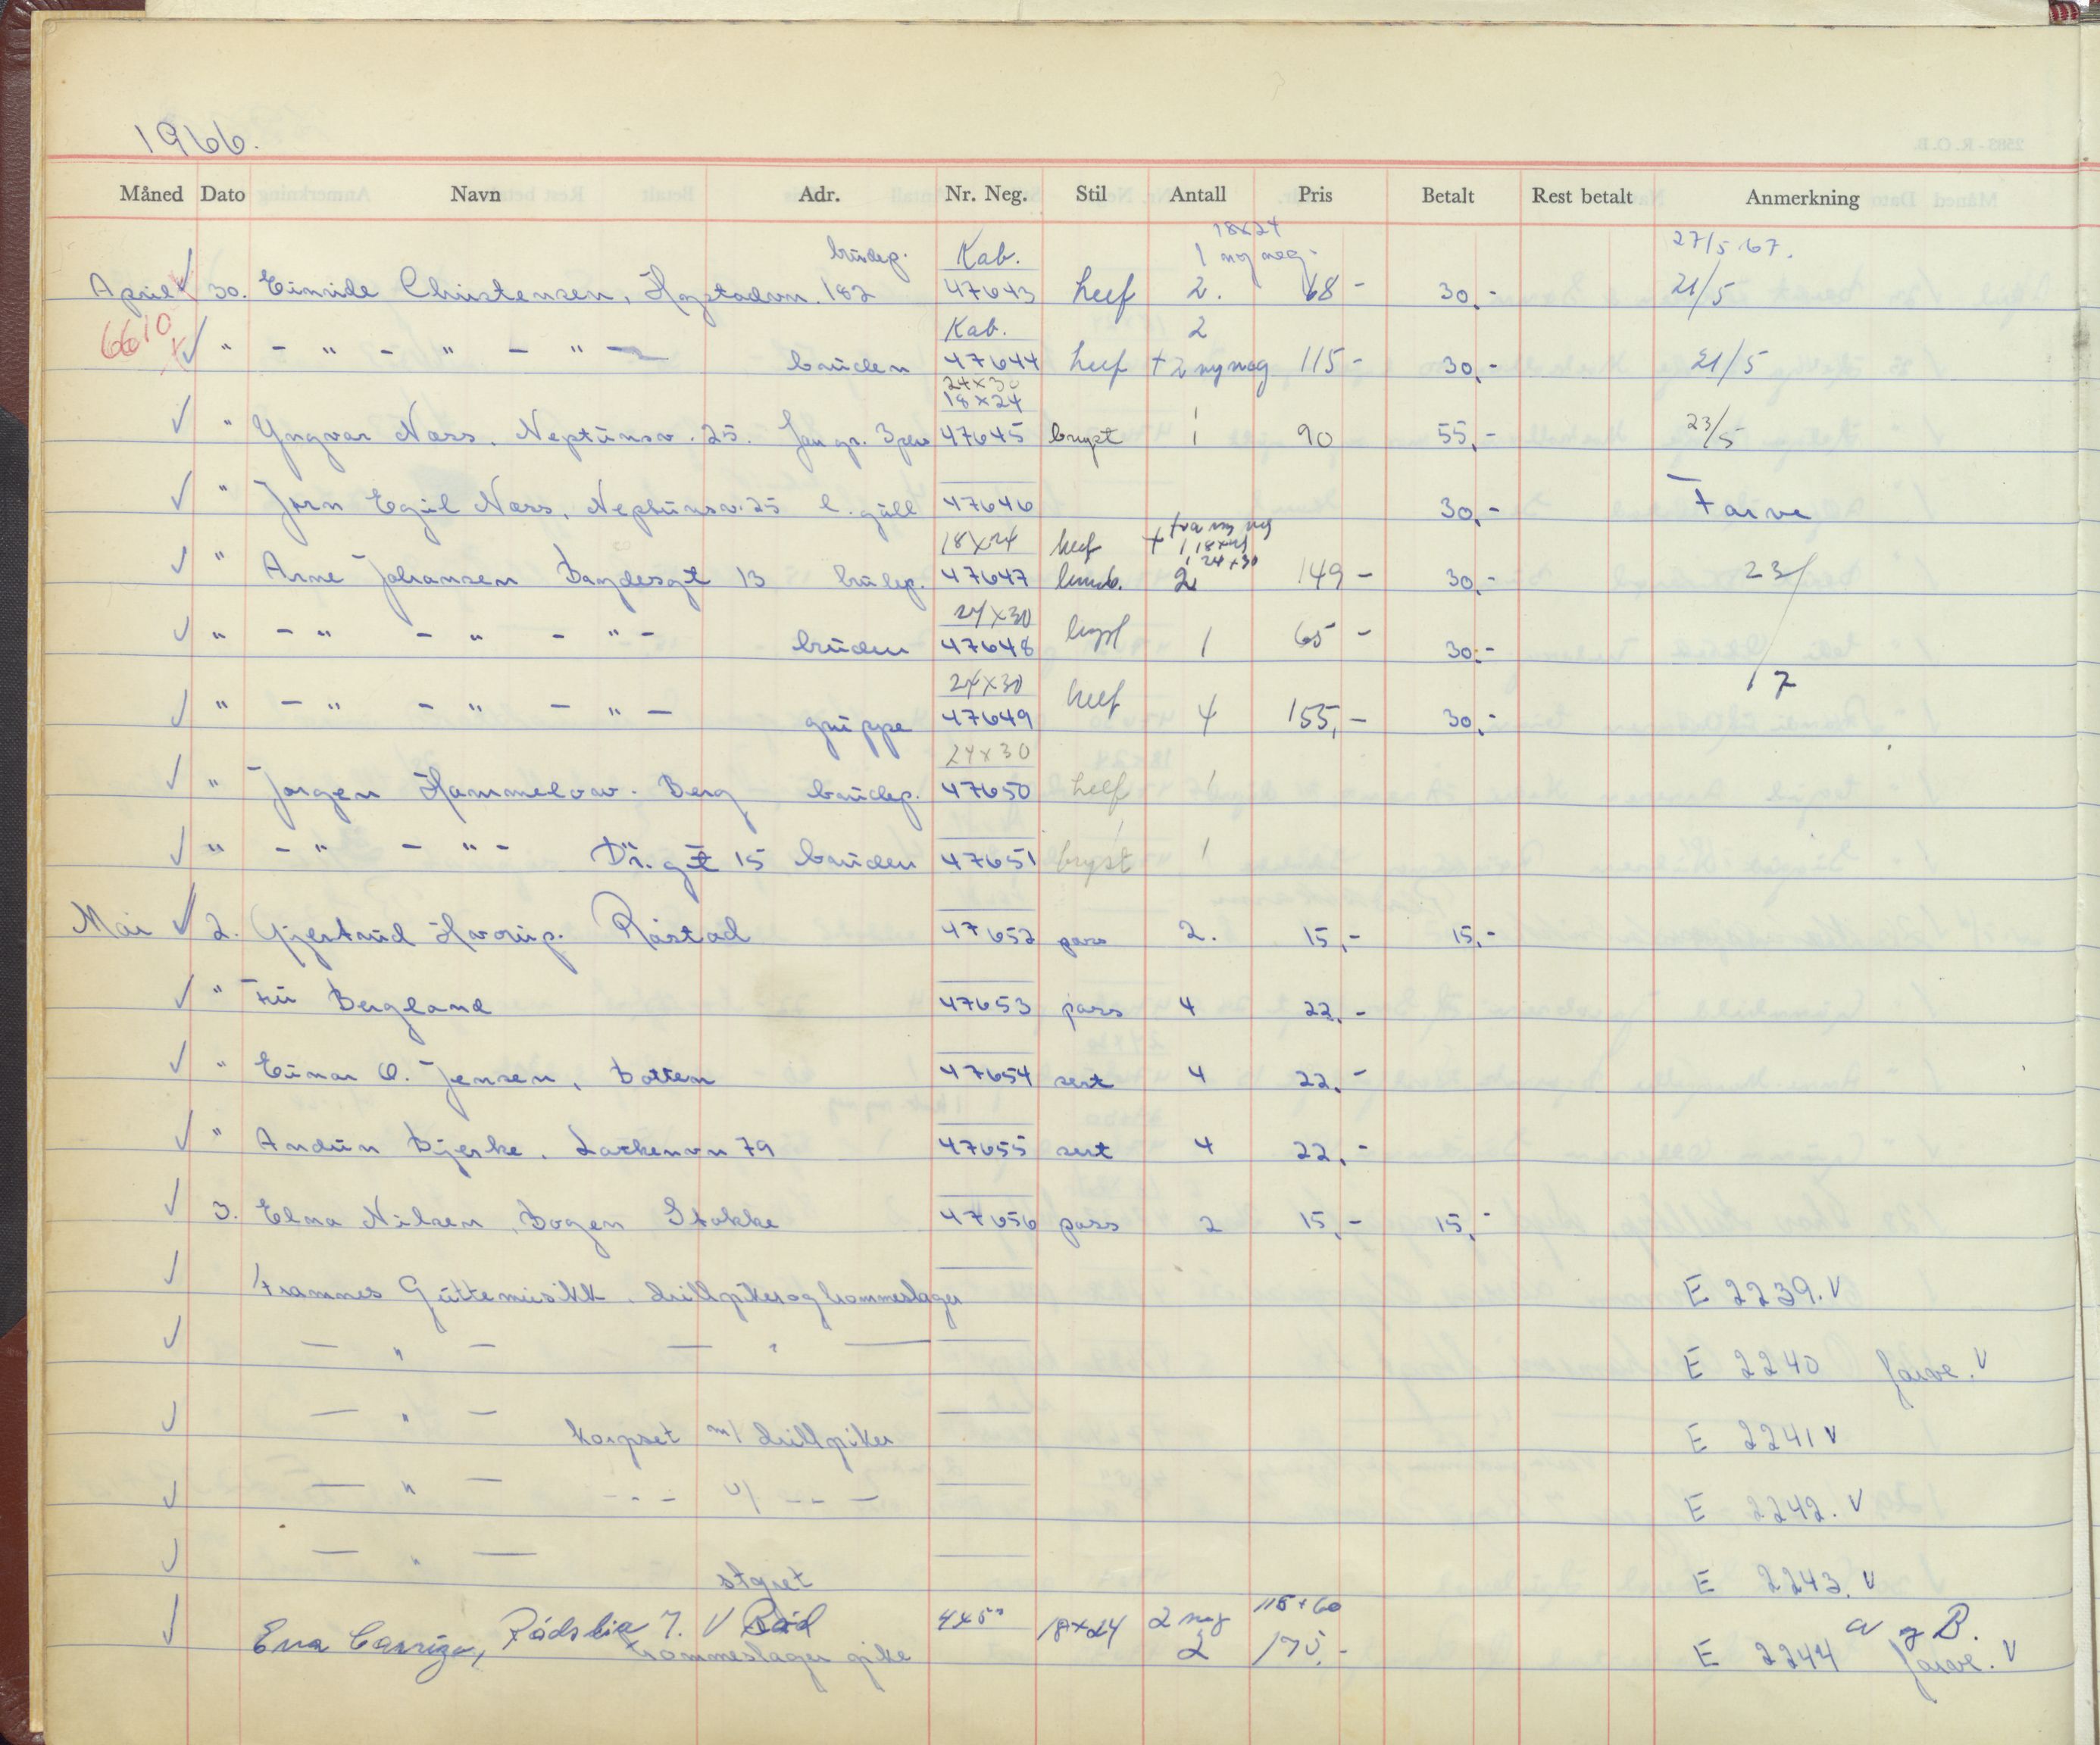 1966.
Måned Dato Navn Adr. Nr. Neg. Stil Antall Pris Betalt Rest betalt Anmerkning
brudep. Kab. 18x24 1 ny neg. 27/5 67.
April 30. Eimride Christensen, Hystadvn. 182 47643 heef 2. 68- 30,- 21/5
6610 Kab. 2
" - " - " - " - bruden 47644 heef + 2 ny neg 115- 30,- 21/5
24x30
18x24 1
" Yngvar Næss, Neptunsv. 25. 47645 bryst 1 90 55,- 23/5
" Jørn Egil Næss, Neptunsv. 25 l. gutt 47646 30,- Farve
18x24 heef + fra ny neg 1 18x24 1 24x30
" Arne Johansen Bugdesgt 13 brudep. 47647 2 149- 30,- 23/
24x30
" - " - " - " - bruden 47648 bryst 1 65- 30,-
24x30 7
" - " - " - " - gruppe 47649 heef 4 155,- 30,-
24x30
" Jørgen Hammelow. Berg brudep. 47650 heef 1
" - " - " - Dr. gt 15 bruden 47651 bryst 1
Mai 2. Gjertrud Havorup. Råstad 47652 pass 2. 15,- 15,-
" Fru Bergland 47653 pass 4 22,-
" Einar O. Jensen, Botten 47654 sert 4 22,-
" Audun Bjerke. 79 47655 sert 4 22,-
3. Elna Nilsen, Bogen Stokke 47656 pass 2 15,- 15,-
Framnes Guttemusikk. drillpiker og trommeslager E 2239. V
— " — — " — E 2240 farve. V
— " — korpset m/ drillpiker E 2241 V
— " — - - - u/ - - - E 2242. V
— " — styret E 2243. V
Eva Carrizo, Rådslia 7. V Råd 4x5" 18x24 2 neg 115+60 a og B.
trommeslager pike 2 175.- E 2244 farve. V